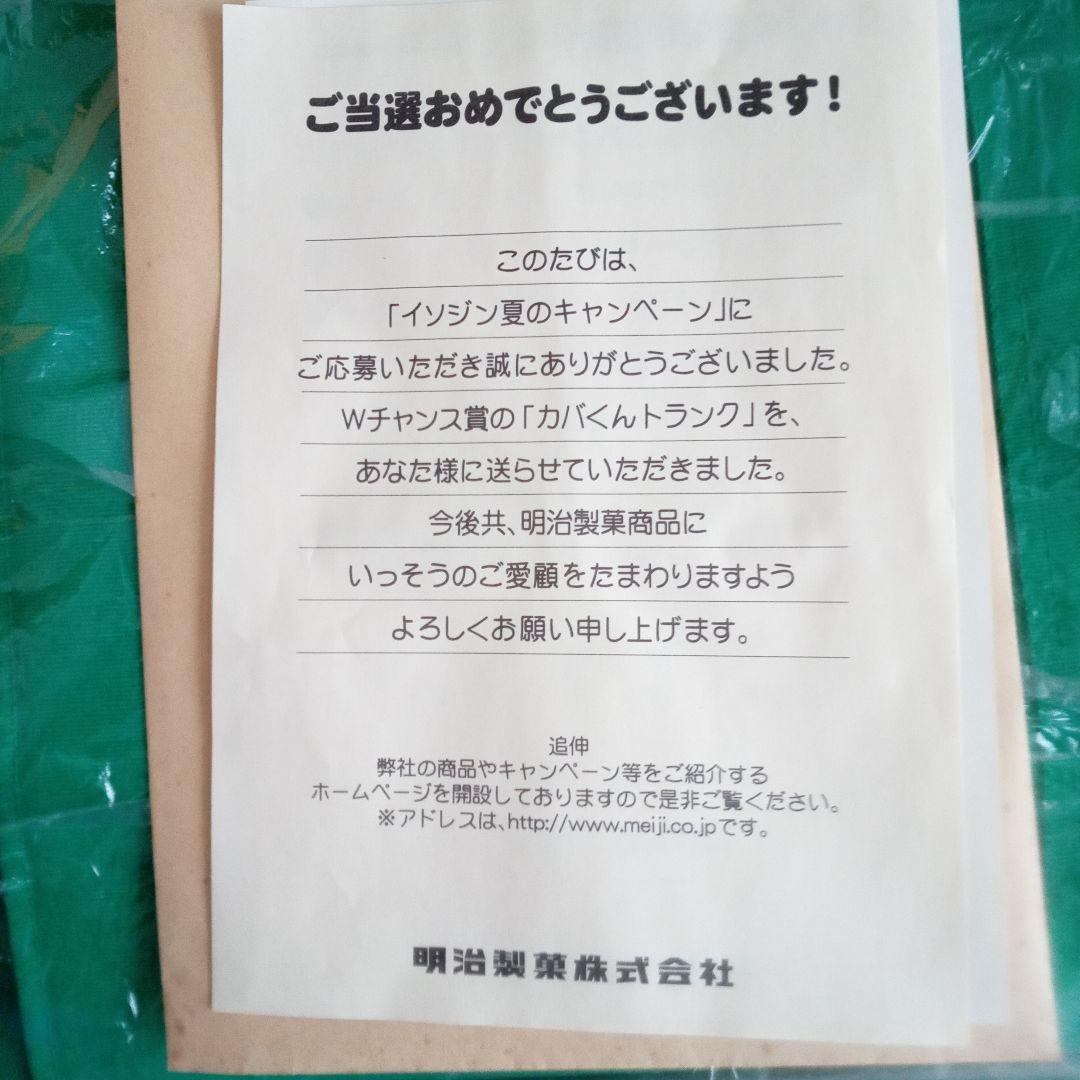 ご当選おめでとうございます!
このたびは、
「イソジン夏のキャンペーン」に
ご応募いただき誠にありがとうございました。
Wチャンス賞の「カバくんトランク」を、
あなた様に送らせていただきました。
今後共、明治製菓商品に
いっそうのご愛顧をたまわりますよう
よろしくお願い申し上げます。
追伸
弊社の商品やキャンペーン等をご紹介する
ホームページを開設しておりますので是非ご覧ください。
※アドレスは、http://www.meiji.co.jpです。
明治製菓株式会社